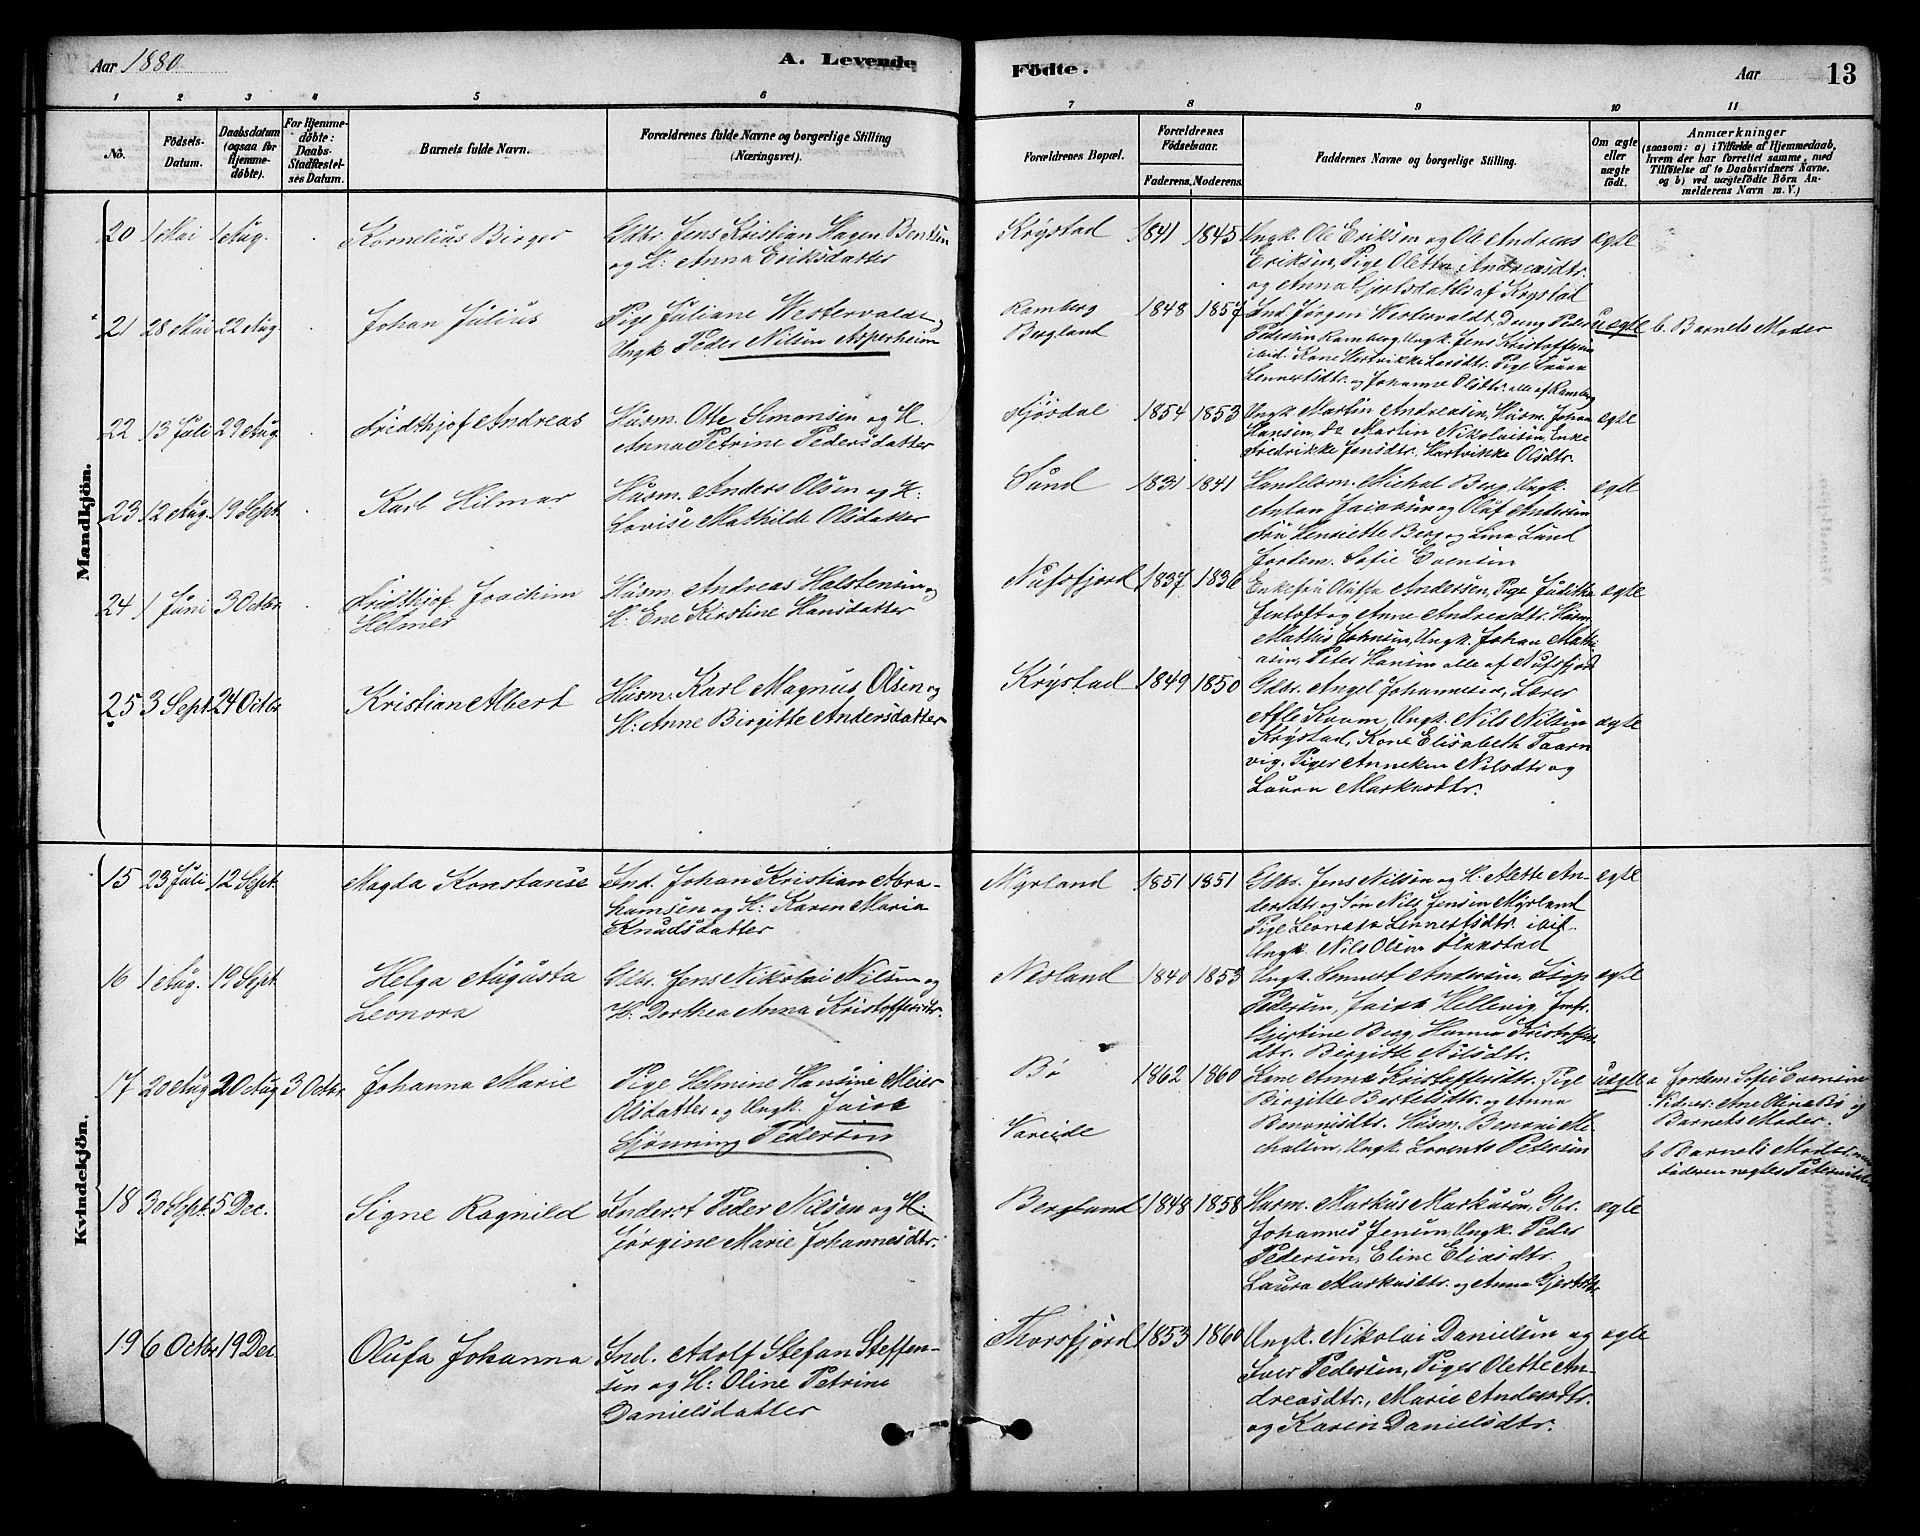 Aar 1880
A. Levende
Födte.
Aar
13
1 2 3 4 5 6 7 8 9 10 11
No.
Födsels-Datum.
Daabsdatum (ogsaa for Hjemmedöbte).
For Hjemmedöbte: Daabs-Stadfæstelses Datum.
Barnets fulde Navn.
Forældrenes fulde Navne og borgerlige Stilling (Næringsvei).
Forældrenes Bopæl.
Forældrenes Födselsaar.
Faderens. Moderens.
Faddernes Navne og borgerlige Stilling.
Om ægte eller uægte født.
Anmærkninger
(saasom: a) i Tilfælde af Hjemmedaab, hvem der har forrettet samme, med Tilföielse af to Daabsvidners Navne, og b) ved uægtefödte Börn Anmelderens Navn m. V.)
Mandkjön.
20 1 Mai 1 Aug. Kornelius Birger
Gbr. Jens Kristian Hagen Bentsen
og H. Anna Eriksdatter
Krystad 1841 1845
Ungk. Ole Eriksen og Ole Andreas
Eriksen, Pige Oletta Andreasdtr.
og Anna Gjertsdatter af Krystad
ægte
21 28 Mai 22 Aug. Johan Julius
Pige Juliane Westervaldt og
Ungk Peder Nilsen Asperheim
Ramberg
Bergland
1848 1857
Ind. Jørgen Westervaldt, Dreng Peder
Pedersen Ramberg, Ungk. Jens Kristoffersen
ibid. Kone Hertvikke Larsdtr. Pige Laura
Lennertsdtr. og Johanne Olsdtr. alle af Ramberg
uægte
b. Barnets Moder
22 13 Juli 29 Aug. Fredthjof Andreas
Husm. Otte Simonsen og H.
Anna Petrine Pedersdatter
Fjøsdal 1854 1853
Ungk. Martin Andreasen, Husm. Johan
Hansen, do Martin Nikolaisen, Enke
Fredrikke Jensdtr. Hartvikke Olsdtr.
ægte
23 12 Aug. 19 Sept. Karl Hilmar
Husm. Anders Olsen og H:
Lovise Mathilde Olsdatter
Sund 1831 1841
Handelsm. Michal Berg, Ungk.
Anton Jakobsen og Oluf Andersen
Fru Henriette Berg og Lina Lund
Jordem. Sofie Evensen
ægte
24 1 Juni 3 Octbr. Fridthjof Joachim
Helmer
Husm. Andreas Halstensen og
H. Ene Kirstine Hansdatter
Nufsfjord 1837 1836
Enkefru Oluffa Andersen, Pige Juditha
Jentoft og Anne Andreasdtr. Husm.
Mathis Johnsen, Ungk. Johan Mathi
asen, Peter Hansen alle af Nufsfjord
ægte
25 3 Sept. 24 Octbr. Kristian Albert
Husm. Karl Magnus Olsen og
H: Anne Birgitte Andersdatter
Krystad 1849 1850
Gbr. Angel Johannesen, Lærer
Krystad, Kone Elisabeth Taarn
vig. Piger Anneken Nilsdtr og
Laura Markusdtr.
ægte
Kvindekjön.
15 23 Juli 12 Sept. Magda Konstanse
Ind. Johan Kristian Abra-
hamsen og H: Karen Maria
Knudsdatter
Myrland 1851 1851
Gbr. Jens Nilsen og H. Alette An-
dersdtr og Søn Nils Jensen Myrland
Pige Leonora Lennertsdtr. ibid.
Ungk. Nils Olsen Flakstad
ægte
16 1 Aug. 19 Sept. Helga Augusta
Leonora
Gbr. Jens Nikolai Nilsen og
H: Dorthea Anna Kristoffersdtr.
Nesland 1840 1853
Ungk. Lennert Andersen,
Pedersen, Jakob Hellevig, Jmfr.
Gjertine Berg, Hanna Kristoffers
dtr. Birgitte Nilsdtr.
ægte
17 20 Aug 20 Aug 3 Octbr. Johanna Marie
Pige Helmine Hansine Meier
Olsdatter og Ungk. Jacob
Gjønning Pedersen
Bø
Vareide
1862 1860
Kone Anna Kristoffersdtr. Pige
Birgitte Bertelsdtr. og Anna
Benonisdtr. Husm. Benoni Mi-
chalsen, Ungk. Lorents Petersen
uægte
a Jordem. Sofie Evensen
Vidner: Ane Olina Bø og
Barnets Moder.
b Barnets Moder, men
Faderen negter Paterniteten
18 30 Sept. 5 Dec. Signe Ragnild
Inderst Peder Nilsen og H:
Jørgine Marie Johannesdtr.
Bergland 1848 1858
Husm. Markus Markusen, Gbr.
Johannes Jensen, Ungk. Peder
Pedersen, Eline Eliasdtr.
Laura Markusdtr. og Anna Gjertsdtr.
ægte
19 6 Octbr. 19 Dec. Olufa Johanna
Ind. Adolf Stefan Steffen-
sen og H: Oline Petrine
Danielsdatter
Thorsfjord 1853 1860
Ungk. Nikolai Danielsen og
Iver Pedersen, Piger Olette An-
dreasdtr., Marie Andersdtr.
og Karen Danielsdtr.
ægte